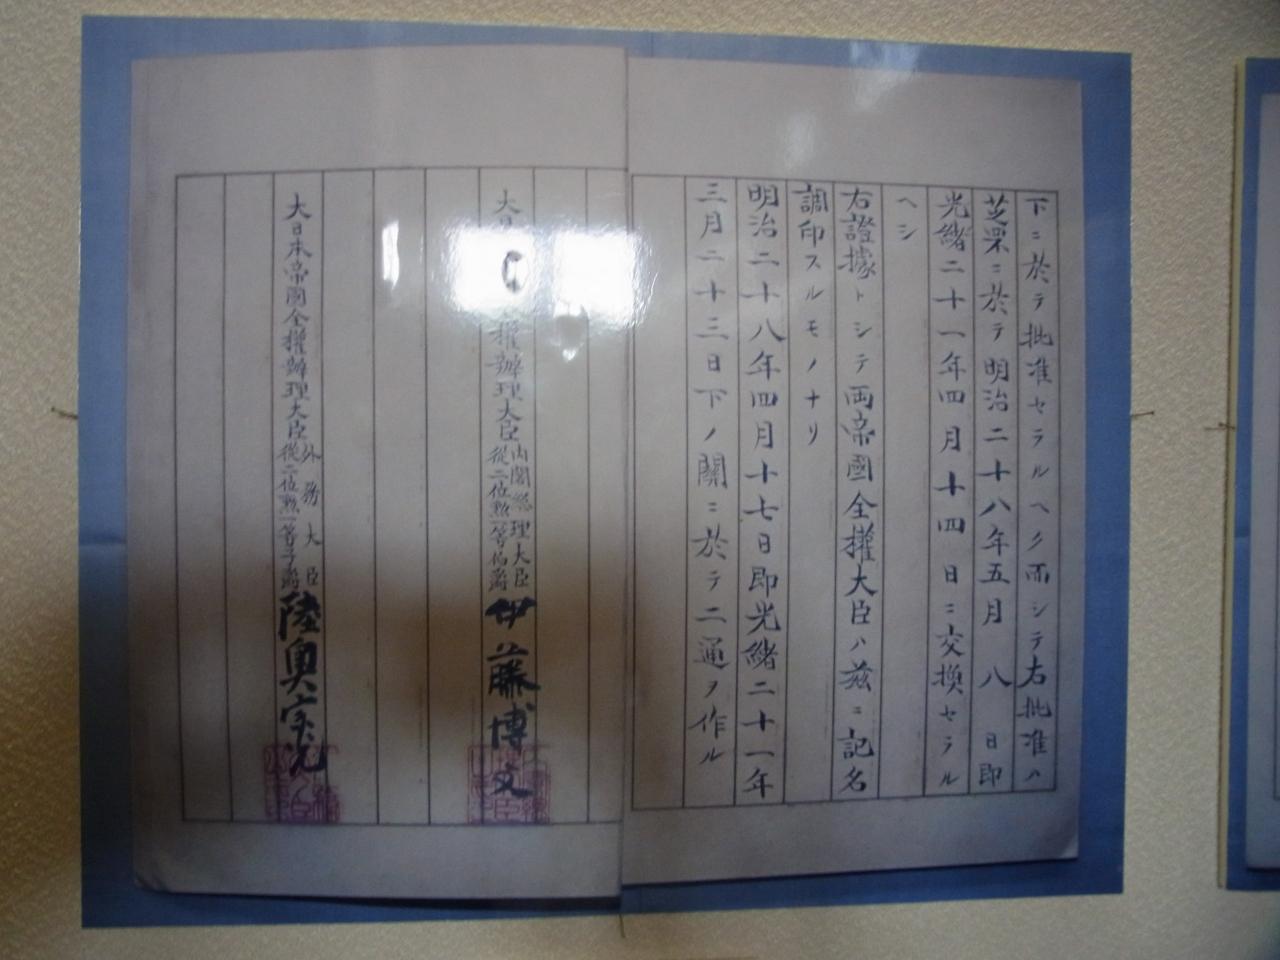 下ニ於テ批准セラルヘク而シテ右批准ハ
芝罘ニ於テ明治二十八年五月八日即
光緒二十一年四月十四日ニ交換セラル
ヘシ
右證據トシテ両帝國全權大臣ハ茲ニ記名
調印スルモノナリ
明治二十八年四月十七日即光緒二十一年
三月二十三日下ノ關ニ於テ二通ヲ作ル
大日 權辦理大臣
内閣總理大臣
從二位勲一等伯爵
伊藤博文
大日本帝國全權辦理大臣
外務大臣
從二位勲一等子爵
陸奥宗光